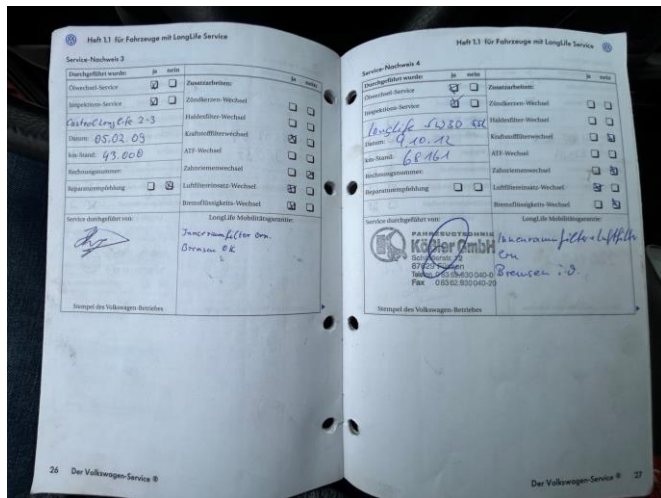 Heft 1.1 für Fahrzeuge mit LongLife Service
Service-Nachweis 3
Durchgeführt wurde: ja nein
Ölwechsel-Service
Inspektions-Service
Castrol Longlife 2-3
Datum: 05.02.09
km-Stand: 49.000
Rechnungsnummer:
Reparaturempfehlung
Zusatzarbeiten: ja nein
Zündkerzen-Wechsel
Haldexfilter-Wechsel
Kraftstofffilterwechsel
ATF-Wechsel
Zahnriemenwechsel
Luftfiltereinsatz-Wechsel
Bremsflüssigkeits-Wechsel
Service durchgeführt von:
LongLife Mobilitätsgarantie:
Innenraumfilter ern.
Bremsen OK
Stempel des Volkswagen-Betriebes
26 Der Volkswagen-Service ®
Heft 1.1 für Fahrzeuge mit LongLife Service
Service-Nachweis 4
Durchgeführt wurde: ja nein
Ölwechsel-Service
Inspektions-Service
Longlife 5W30
Datum: 9.10.12
km-Stand: 68161
Rechnungsnummer:
Reparaturempfehlung
Zusatzarbeiten: ja nein
Zündkerzen-Wechsel
Haldexfilter-Wechsel
Kraftstofffilterwechsel
ATF-Wechsel
Zahnriemenwechsel
Luftfiltereinsatz-Wechsel
Bremsflüssigkeits-Wechsel
Service durchgeführt von:
FAHRZEUGTECHNIK
Kößler GmbH
87629 Füssen
Telefon 08362.930040-0
Fax 08362.930040-20
LongLife Mobilitätsgarantie:
Innenraumfilter + Luftfilter
ern
Bremsen i.O.
Stempel des Volkswagen-Betriebes
Der Volkswagen-Service ® 27